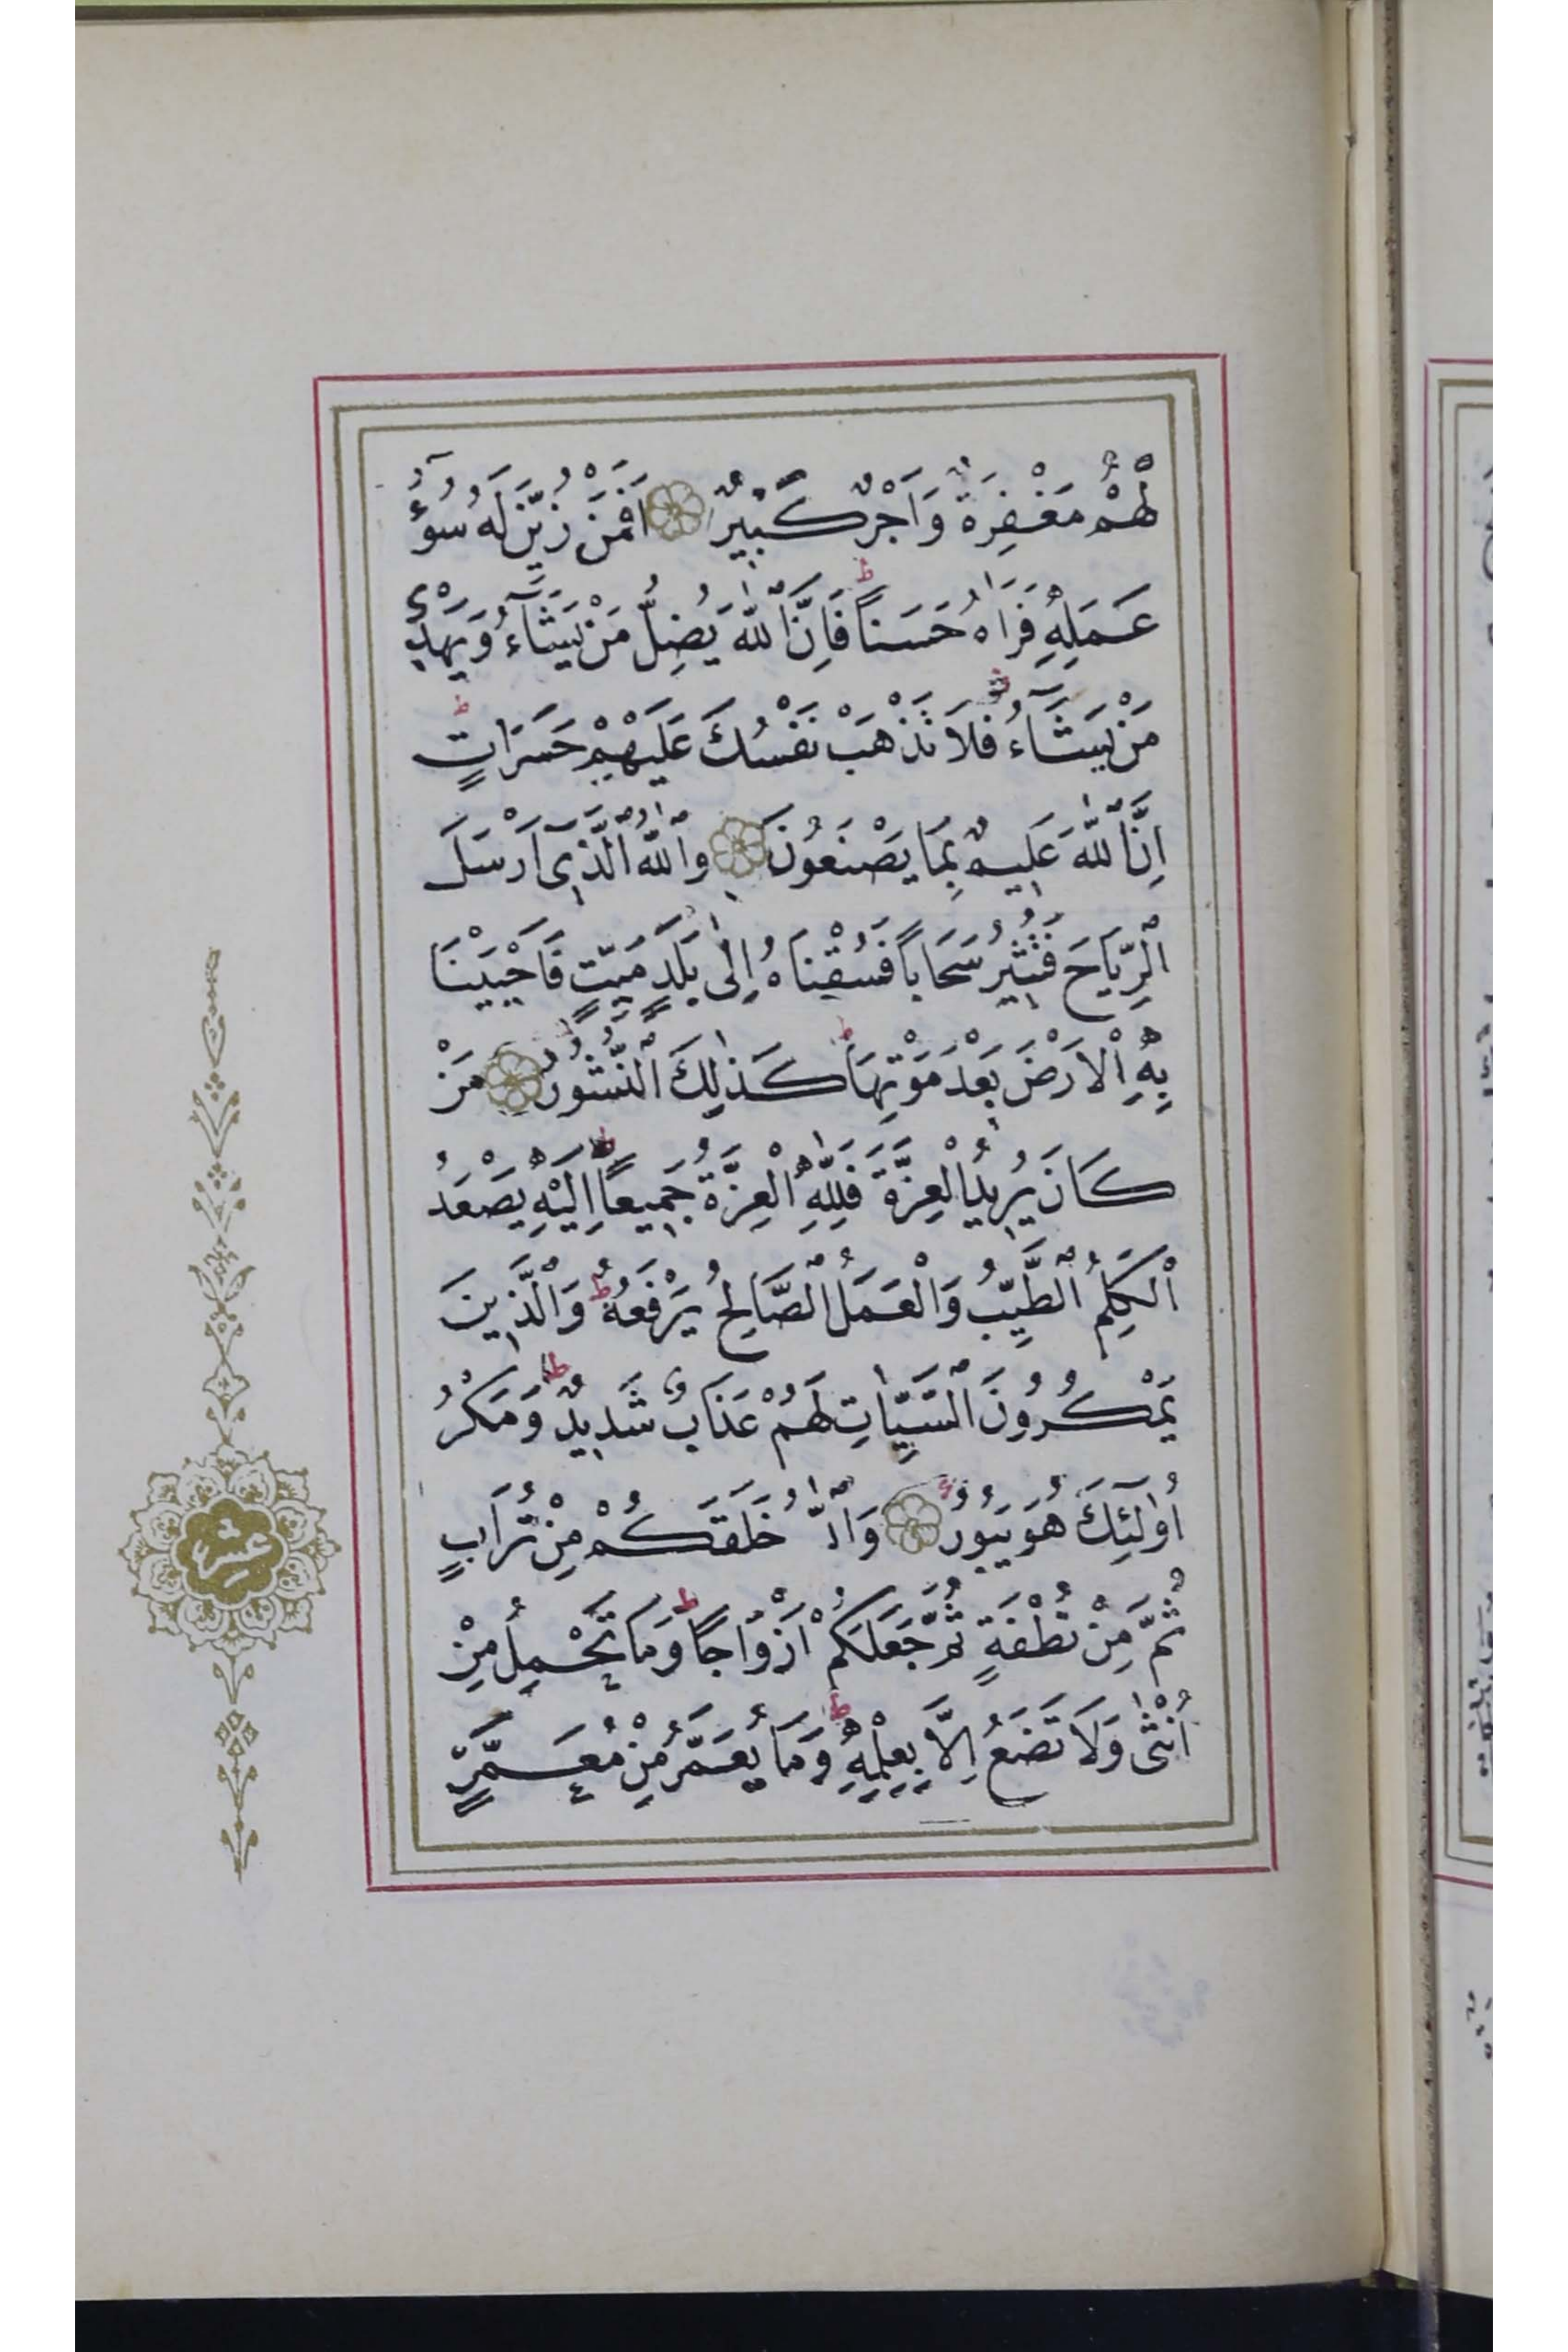 لَهُمْ مَغْفِرَةٌ وَاَجْرٌ كَبِيرٌ اَفَمَنْ زُيِّنَ لَهُ سُوٓءُ
عَمَلِهِ فَرَاٰهُ حَسَناً ط فَاِنَّ ٱللّٰهَ يُضِلُّ مَنْ يَشَٓاءُ وَيَهْدِي
مَنْ يَشَٓاءُ فَلَا تَذْهَبْ نَفْسُكَ عَلَيْهِمْ حَسَرَاتٍ ط
اِنَّ ٱللّٰهَ عَلِيمٌ بِمَا يَصْنَعُونَ وَٱللّٰهُ ٱلَّذِٓي اَرْسَلَ
ٱلرِّيَاحَ فَتُثِيرُ سَحَاباً فَسُقْنَاهُ اِلٰى بَلَدٍ مَيِّتٍ فَاَحْيَيْنَا
بِهِ ٱلْاَرْضَ بَعْدَ مَوْتِهَا ط كَذٰلِكَ ٱلنُّشُورُ مَنْ
كَانَ يُرِيدُ ٱلْعِزَّةَ فَلِلّٰهِ ٱلْعِزَّةُ جَمِيعاً ط اِلَيْهِ يَصْعَدُ
ٱلْكَلِمُ ٱلطَّيِّبُ وَٱلْعَمَلُ ٱلصَّالِحُ يَرْفَعُهُ ط وَٱلَّذِينَ
يَمْكُرُونَ ٱلسَّيِّاٰتِ لَهُمْ عَذَابٌ شَدِيدٌ ط وَمَكْرُ
اُو۬لٰٓئِكَ هُوَ يَبُورُ وَٱللّٰهُ خَلَقَكُمْ مِنْ تُرَابٍ
ثُمَّ مِنْ نُطْفَةٍ ثُمَّ جَعَلَكُمْ اَزْوَاجاً ط وَمَا تَحْمِلُ مِنْ
اُنْثٰى وَلَا تَضَعُ اِلَّا بِعِلْمِهِ ط وَمَا يُعَمَّرُ مِنْ مُعَمَّرٍ
عشر